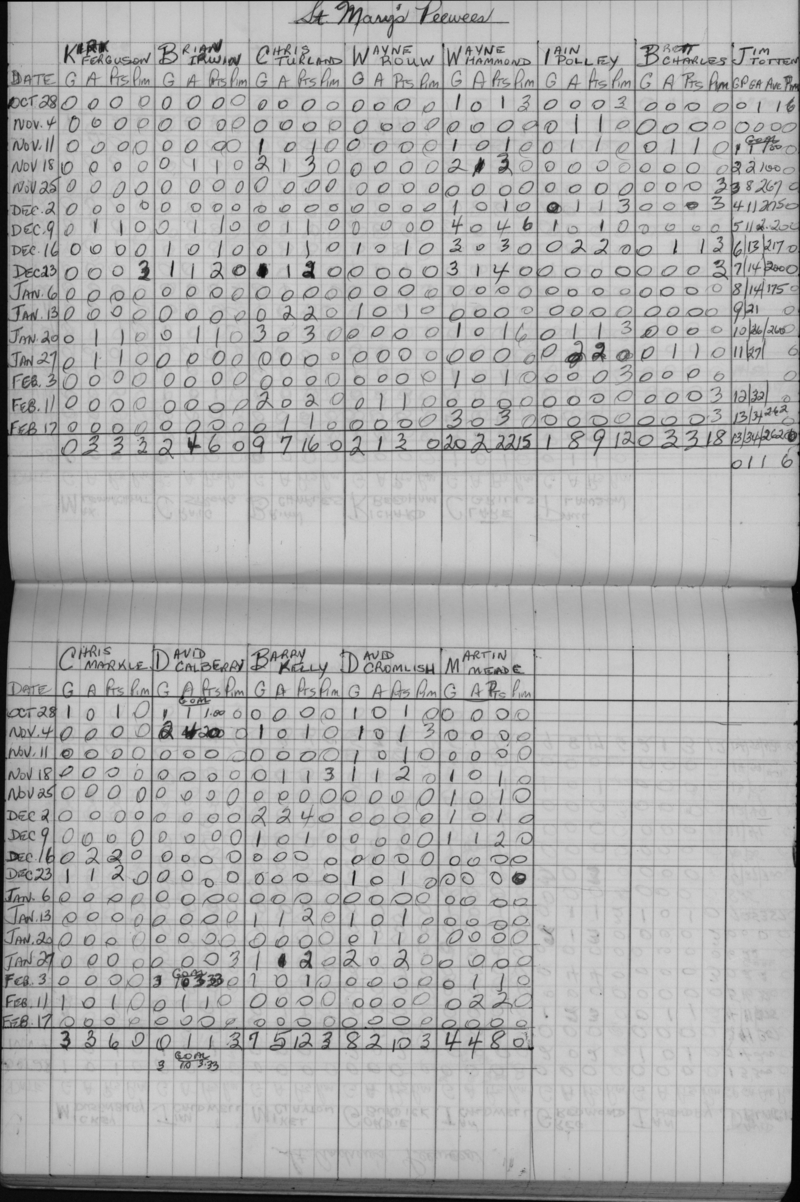 St. Mary's Peewees
KIRK FERGUSON BRIAN IRWIN CHRIS TURLAND WAYNE ROUW WAYNE HAMMOND IAIN POLLEY BRETT CHARLES JIM TOTTEN
DATE G A Pts Pim G A Pts Pim G A Pts Pim G A Pts Pim G A Pts Pim G A Pts Pim G A Pts Pim GP GA Ave Pim
OCT 28 0 0 0 0 0 0 0 0 0 0 0 0 0 0 0 0 1 0 1 3 0 0 0 3 0 0 0 0 0 1 1 6
NOV. 4 0 0 0 0 0 0 0 0 0 0 0 0 0 0 0 0 0 0 0 0 0 1 1 0 0 0 0 0 0 0 0 0
NOV. 11 0 0 0 0 0 0 0 0 1 0 1 0 0 0 0 0 1 0 1 0 0 1 1 0 0 1 1 0 Goal
NOV 18 0 0 0 0 0 1 1 0 2 1 3 0 0 0 0 0 2 1 3 0 0 0 0 0 0 0 0 0 2 2 100 0
NOV 25 0 0 0 0 0 0 0 0 0 0 0 0 0 0 0 0 0 0 0 0 0 0 0 0 0 0 0 3 3 8 267 0
DEC. 2 0 0 0 0 0 0 0 0 0 0 0 0 0 0 0 0 1 0 1 0 0 1 1 3 0 0 0 3 4 11 275 0
DEC. 9 0 1 1 0 0 1 1 0 0 1 1 0 0 0 0 0 4 0 4 6 1 0 1 0 0 0 0 0 5 11 2.20 0
DEC. 16 0 0 0 0 1 0 1 0 0 1 1 0 1 0 1 0 3 0 3 0 0 2 2 0 0 1 1 3 6/13/217 0
DEC 23 0 0 0 3 1 1 2 0 1 1 2 0 0 0 0 0 3 1 4 0 0 0 0 0 0 0 0 3 7/14/200 0
JAN. 6 0 0 0 0 0 0 0 0 0 0 0 0 0 0 0 0 0 0 0 0 0 0 0 0 0 0 0 0 8/14/175 0
JAN. 13 0 0 0 0 0 0 0 0 0 2 2 0 1 0 1 0 0 0 0 0 0 0 0 0 0 0 0 0 9/21 0
JAN. 20 0 1 1 0 0 1 1 0 3 0 3 0 0 0 0 0 1 0 1 6 0 1 1 3 0 0 0 0 10/26/260
JAN 27 0 1 1 0 0 0 0 0 0 0 0 0 0 0 0 0 0 0 0 0 0 2 2 0 0 1 1 0 11/27/ 0
FEB. 3 0 0 0 0 0 0 0 0 0 0 0 0 0 0 0 0 1 0 1 0 0 0 0 3 0 0 0 0 0
FEB. 11 0 0 0 0 0 0 0 0 2 0 2 0 0 1 1 0 0 0 0 0 0 0 0 0 0 0 0 3 12/32/ 0
FEB 17 0 0 0 0 0 0 0 0 0 1 1 0 0 0 0 0 3 0 3 0 0 0 0 0 0 0 0 3 13/34/262
0 3 3 3 2 4 6 0 9 7 16 0 2 1 3 0 20 2 22 15 1 8 9 12 0 3 3 18 13/34/262 0
0 1 1 6
CHRIS MARKLE DAVID CALBERRY BARRY KELLY DAVID CROMLISH MARTIN MEADE
DATE G A Pts Pim G A Pts Pim G A Pts Pim G A Pts Pim G A Pts Pim
Goal
OCT 28 1 0 1 0 1 1 1.00 0 0 0 0 0 1 0 1 0 0 0 0 0
NOV. 4 0 0 0 0 2 4 200 1 0 1 0 1 0 1 3 0 0 0 0
NOV. 11 0 0 0 0 0 0 0 0 0 0 0 1 0 1 0 0 0 0 0
NOV 18 0 0 0 0 0 0 0 0 0 1 1 3 1 1 2 0 1 0 1 0
NOV 25 0 0 0 0 0 0 0 0 0 0 0 0 0 0 0 0 1 0 1 0
DEC 2 0 0 0 0 0 0 0 0 2 2 4 0 0 0 0 0 1 0 1 0
DEC 9 0 0 0 0 0 0 0 0 1 0 1 0 0 0 0 0 1 1 2 0
DEC 16 0 2 2 0 0 0 0 0 0 0 0 0 0 0 0 0 0 0 0 0
DEC 23 1 1 2 0 0 0 0 0 0 0 0 0 1 0 1 0 0 0 0 0
JAN. 6 0 0 0 0 0 0 0 0 0 0 0 0 0 0 0 0 0 0 0 0
JAN. 13 0 0 0 0 0 0 0 0 1 1 2 0 1 0 1 0 0 0 0 0
JAN. 20 0 0 0 0 0 0 0 0 0 0 0 0 0 1 1 0 0 0 0 0
JAN 27 0 0 0 0 0 0 0 3 1 1 2 0 2 0 2 0 0 0 0 0
FEB. 3 0 0 0 0 3 Goal 10 3.33 1 0 1 0 0 0 0 0 0 1 1 0
FEB. 11 1 0 1 0 0 1 1 0 0 0 0 0 0 0 0 0 0 2 2 0
FEB. 17 0 0 0 0 0 0 0 0 0 0 0 0 0 0 0 0 0 0 0 0
3 3 6 0 0 1 1 3 7 5 12 3 8 2 10 3 4 4 8 0
Goal
3 10 3.33